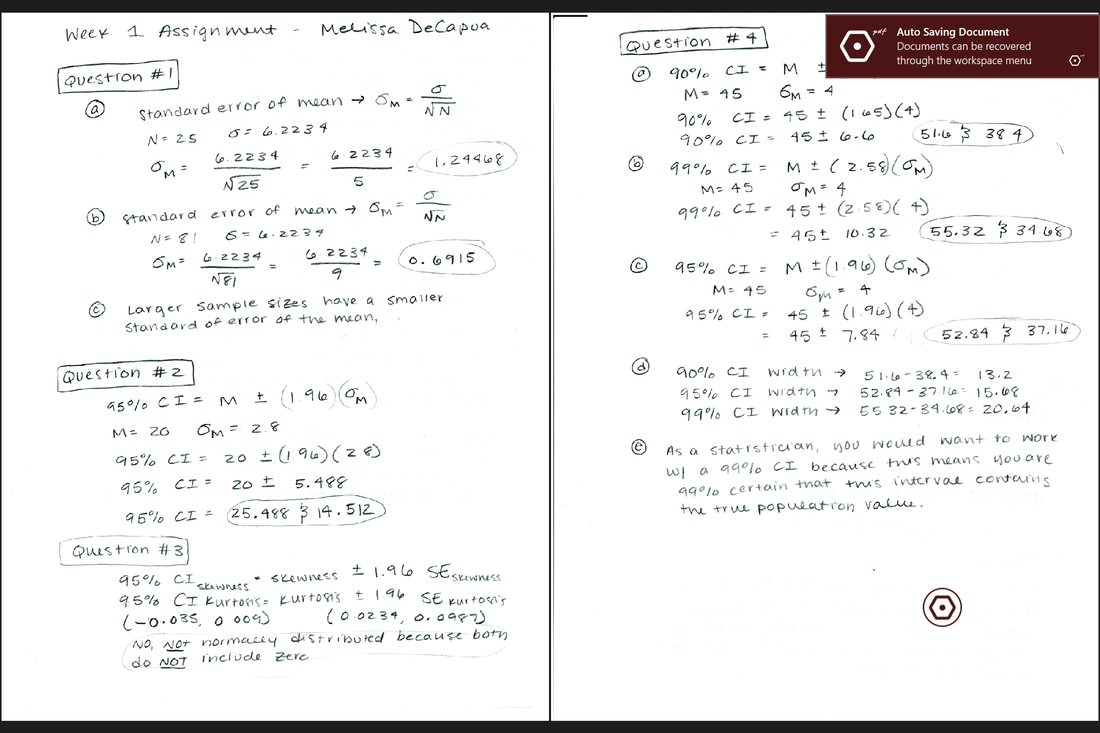 Week 1 Assignment - Melissa DeCapua
Question #1
(a) Standard error of mean → σM = σ/√N
N = 25 σ = 6.2234
σM = 6.2234/√25 = 6.2234/5 = 1.24468
(b) Standard error of mean → σM = σ/√N
N = 81 σ = 6.2234
σM = 6.2234/√81 = 6.2234/9 = 0.6915
(c) Larger sample sizes have a smaller
standard of error of the mean,
Question #2
95% CI = M ± (1.96)(σM)
M = 20 σM = 2.8
95% CI = 20 ± (1.96)(2.8)
95% CI = 20 ± 5.488
95% CI = 25.488 & 14.512
Question #3
95% CI skewness = skewness ± 1.96 SE skewness
95% CI Kurtosis = Kurtosis ± 1.96 SE Kurtosis
(-0.035, 0.009) (0.0234, 0.0987)
No, NOT normally distributed because both
do NOT include zero
Question #4
(a) 90% CI = M ±
M = 45 σM = 4
90% CI = 45 ± (1.65)(4)
90% CI = 45 ± 6.6 51.6 & 38.4
(b) 99% CI = M ± (2.58)(σM)
M = 45 σM = 4
99% CI = 45 ± (2.58)(4)
= 45 ± 10.32 55.32 & 34.68
(c) 95% CI = M ± (1.96)(σM)
M = 45 σM = 4
95% CI = 45 ± (1.96)(4)
= 45 ± 7.84 52.84 & 37.16
(d) 90% CI width → 51.6 - 38.4 = 13.2
95% CI width → 52.84 - 37.16 = 15.68
99% CI width → 55.32 - 34.68 = 20.64
(e) As a statistician, you would want to work
w/ a 99% CI because this means you are
99% certain that this interval contains
the true population value.
pdf
Auto Saving Document
Documents can be recovered
through the workspace menu